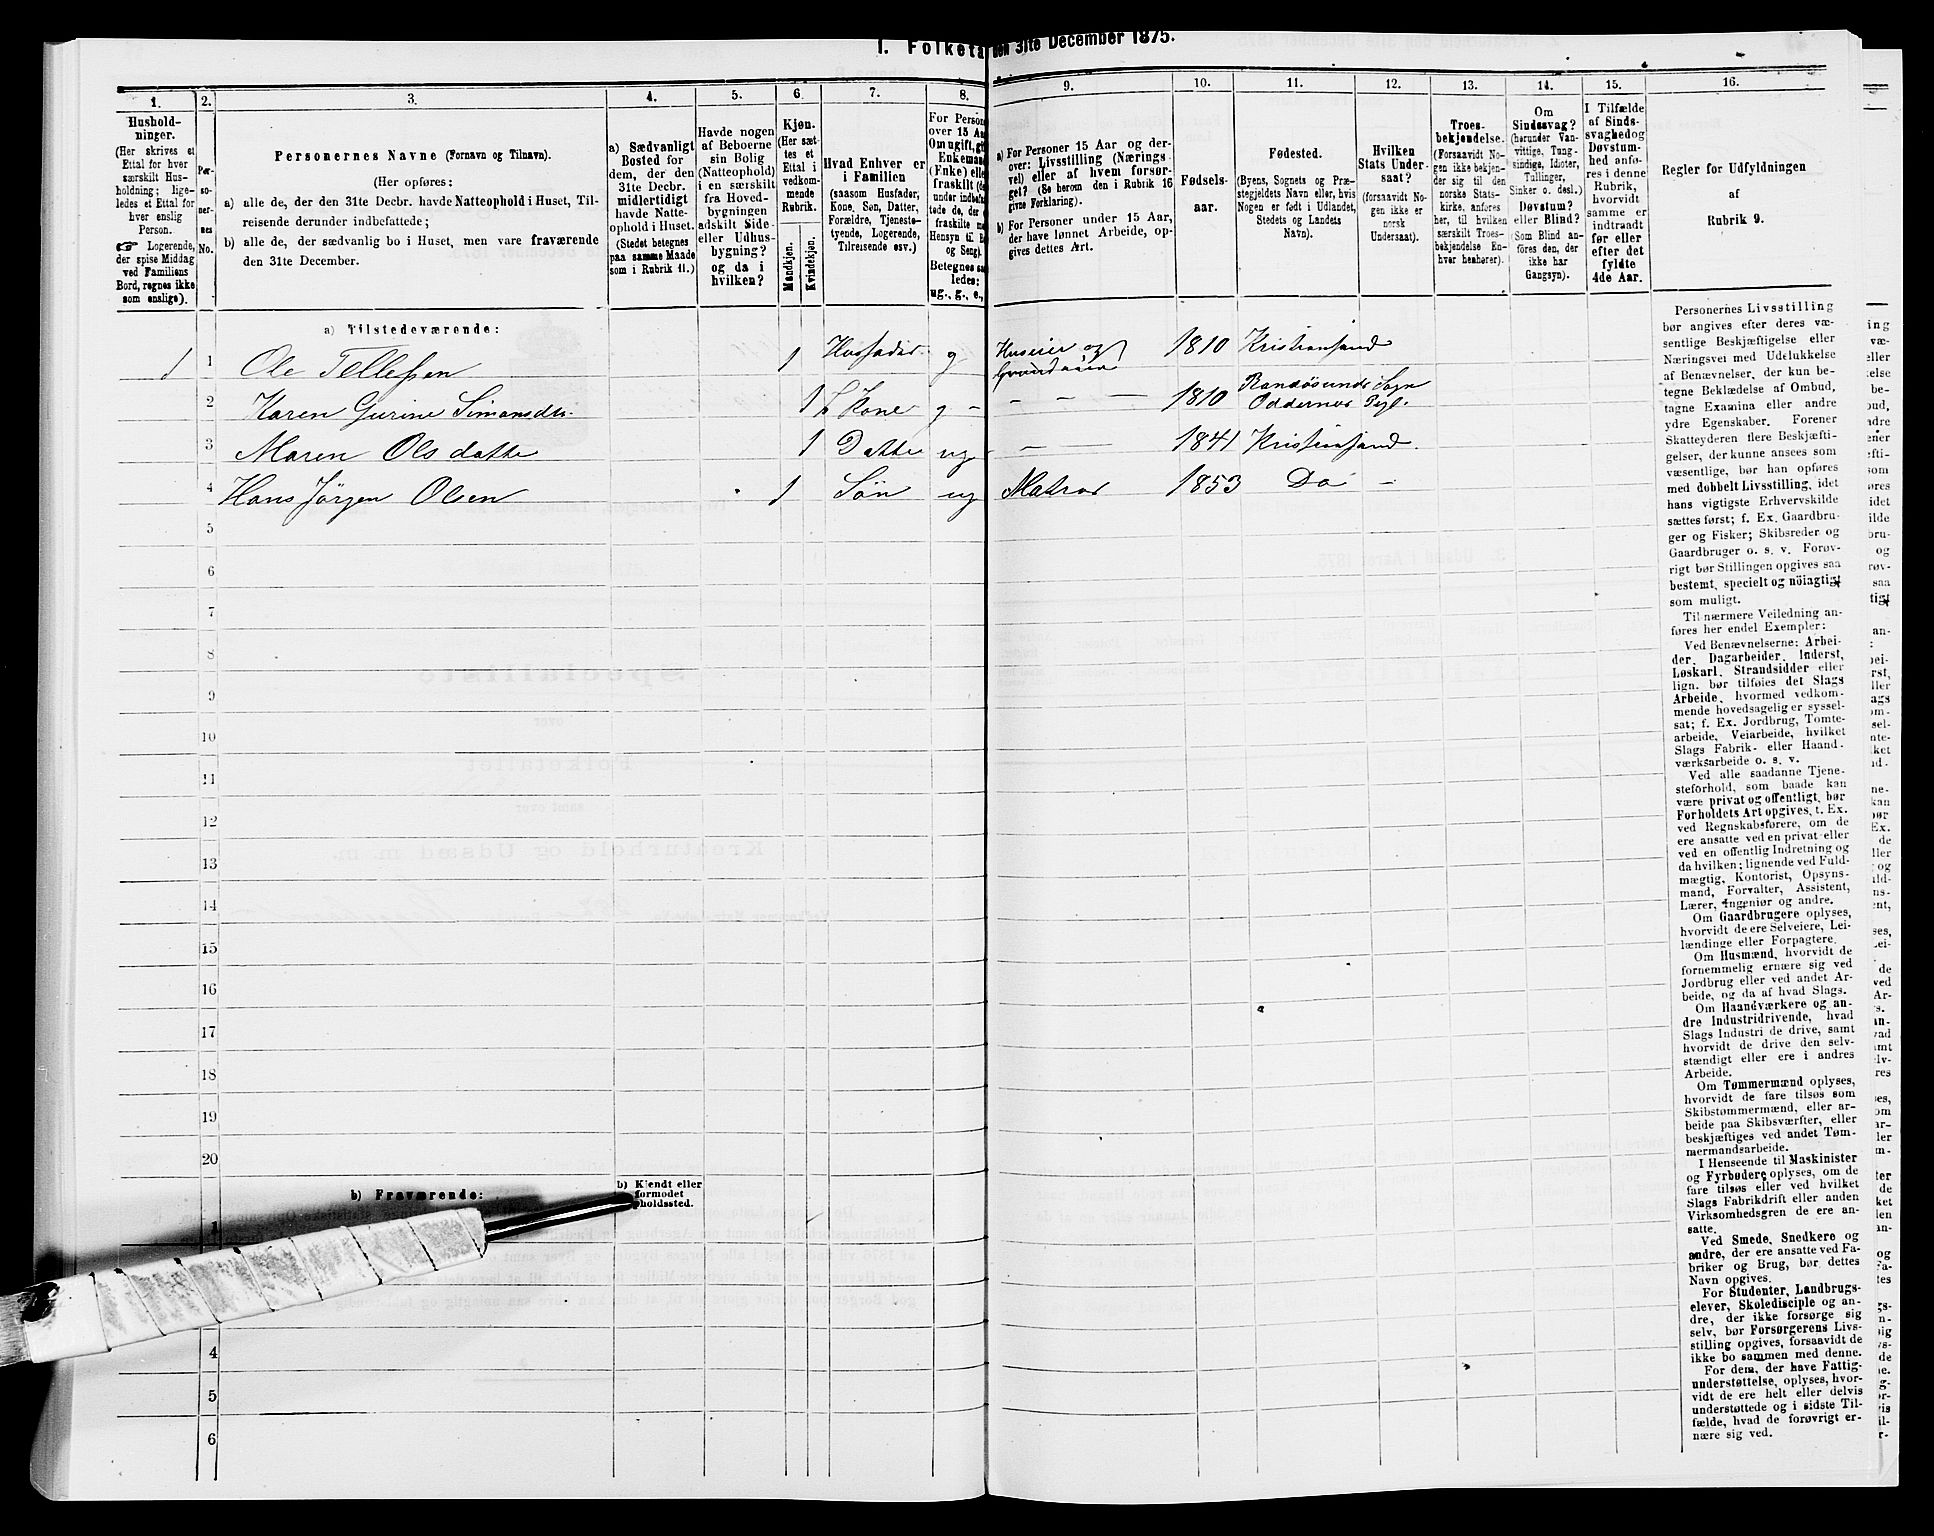 I. Folketa den 31te December 1875.
1.
Hushold-
ninger.
(Her skrives et
Ettal for hver
særskilt Hus-
holdning; lige-
ledes et Ettal for
hver enslig
Person.
☞ Logerende,
der spise Middag
ved Familiens
Bord, regnes ikke
som enslige).
2.
Per-
so-
ner-
nes
No.
3.
Personernes Navne (Fornavn og Tilnavn).
(Her opføres:
a) alle de, der den 31te Decbr. havde Natteophold i Huset, Til-
reisende derunder indbefattede;
b) alle de, der sædvanlig bo i Huset, men vare fraværende
den 31te December.
4.
a) Sædvanligt
Bosted for
dem, der den
31te Decbr.
midlertidigt
havde Natte-
ophold i Huset.
(Stedet betegnes
paa samme Maade
som i Rubrik 11.)
5.
Havde nogen
af Beboerne
sin Bolig
(Natteophold)
i en særskilt
fra Hoved-
bygningen
adskilt Side-
eller Udhus-
bygning?
og da i
hvilken?
6.
Kjøn.
(Her sæt-
tes et
Ettal i
vedkom-
mende
Rubrik.
Mandkjøn.
Kvindekjøn.
7.
Hvad Enhver er
i Familien
(saasom Husfader,
Kone, Søn, Datter,
Forældre, Tjeneste-
tyende, Logerende,
Tilreisende osv.)
8.
For Person
over 15 Aa
Om ugift, gi
Enkemand
(Enke) elle
fraskilt (de
under indbef
tede de, der
fraskilte m
Hensyn til B
og Seng).
Betegnes sa
ledes:
ug., g., e.,
9.
a) For Personer 15 Aar og der-
over: Livsstilling (Nærings-
vei) eller af hvem forsør-
get? (Se herom den i Rubrik 16
givne Forklaring).
b) For Personer under 15 Aar,
der have lønnet Arbeide, op-
gives dettes Art.
10.
Fødsels-
aar.
11.
Fødested.
(Byens, Sognets og Præ-
stegjeldets Navn eller, hvis
Nogen er født i Udlandet,
Stedets og Landets
Navn).
12.
Hvilken
Stats Under-
saat?
(forsaavidt No-
gen ikke er
norsk
Undersaat).
13.
Troes-
bekjendelse.
(Forsaavidt No-
gen ikke bekjen-
der sig til den
norske Stats-
kirke, anføres
her, til hvilken
særskilt Troes-
bekjendelse En-
hver henhører).
14.
Om
Sindssvag?
(herunder Van-
vittige, Tung-
sindige, Idioter,
Tullinger,
Sinker o. desl.)
Døvstum?
eller Blind?
(Som Blind an-
føres den, der
ikke har
Gangsyn).
15.
I Tilfælde
af Sinds-
svaghed og
Døvstum-
hed anfø-
res i denne
Rubrik,
hvorvidt
samme er
indtraadt
før eller
efter det
fyldte
4de Aar.
16.
Regler for Udfyldningen
af
Rubrik 9.
a) Tilstedeværende:
1 1 Ole Tellefsen 1 Husfader g Huseier og 1810 Kristiansand
2 Karen Gurine Simonsdtr. 1 Kone g - - - - 1810 Randøsunds Sogn
Oddernes Pgl.
3 Maren Olsdatter 1 Datter ug - - - 1841 Kristiansand
4 Hans Jörgen Olsen 1 Søn ug Matros 1853 Do -
5
6
7
8
9
10
11
12
13
14
15
16
17
18
19
20
b) Fraværende:
b) Kjendt eller
formodet
pholdssted.
1
4
5
6
Personernes Livsstilling
bør angives efter deres væ-
sentlige Beskjæftigelse eller
Næringsvei med Udelukkelse
af Benævnelser, der kun be-
tegne Beklædelse af Ombud,
tagne Examina eller andre
ydre Egenskaber. Forener
Skatteyderen flere Beskjæfti-
gelser, der kunne ansees som
væsentlige, bør han opføres
med dobbelt Livsstilling, idet
hans vigtigste Erhvervskilde
sættes først; f. Ex. Gaardbru-
ger og Fisker; Skibsreder og
Gaardbruger o. s. v. Forøv-
rigt bør Stillingen opgives saa
bestemt, specielt og nøiagtigt
som muligt.
Til nærmere Veiledning an-
føres her endel Exempler:
Ved Benævnelserne: Arbei-
der, Dagarbeider, Inderst,
Løskarl, Strandsidder eller
lign. bør tilføies det Slags
Arbeide, hvormed vedkom-
mende hovedsagelig er syssel-
sat; f. Ex. Jordbrug, Tomte-
arbeide, Veiarbeide, hvilket
Slags Fabrik- eller Haand-
værksarbeide o. s. v.
Ved alle saadanne Tjene-
steforhold, som baade kan
være privat og offentligt, bør
Forholdets Art opgives, t. Ex.
ved Regnskabsførere, om de
ere ansatte ved en privat eller
ved en offentlig Indretning og
da hvilken; lignende ved Fuld-
mægtig, Kontorist, Opsyns-
mand, Forvalter, Assistent,
Lærer, Ingeniør og andre.
Om Gaardbrugere oplyses,
hvorvidt de ere Selveiere, Lei-
lændinge eller Forpagtere.
Om Husmænd, hvorvidt de
fornemmelig ernære sig ved
Jordbrug eller ved andet Ar-
beide, og da af hvad Slags.
Om Haandværkere og an-
dre Industridrivende, hvad
Slags Industri de drive, samt
hvorvidt de drive den selv-
stændigt eller ere i andres
Arbeide.
Om Tømmermænd oplyses,
hvorvidt de fare tilsøs som
Skibstømmermænd, eller ar-
beide paa Skibsværfter, eller
beskjæftiges ved andet Tøm-
mermandsarbeide.
I Henseende til Maskinister
og Fyrbødere oplyses, om de
fare tilsøs eller ved hvilket
Slags Fabrikdrift eller anden
Virksomhedsgren de ere an-
satte.
Ved Smede, Snedkere og
andre, der ere ansatte ved Fa-
briker og Brug, bør dettes
Navn opgives.
For Studenter, Landbrugs-
elever, Skoledisciple og an-
dre, der ikke forsørge sig
selv, bør Forsørgerens Livs-
stilling opgives, forsaavidt de
ikke bo sammen med denne.
For dem, der have Fattig-
understøttelse, oplyses, hvor-
vidt de ere helt eller delvis
understøttede og i sidste Til-
fælde, hvad de forøvrigt er-
nære sig ved.